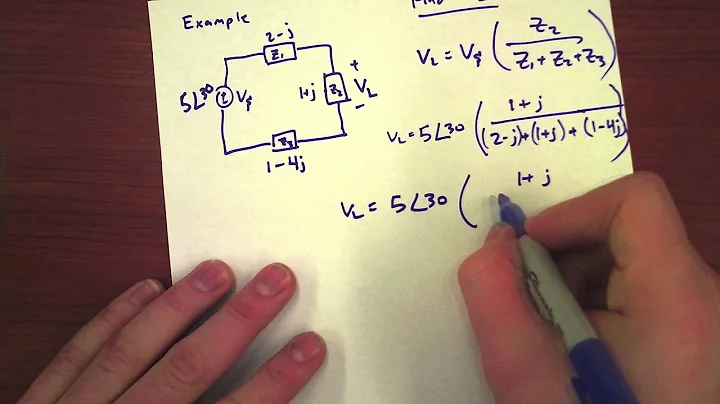 Example
2-j
Z1
5∠30
Vs
1+j
Z2
+
VL
-
Z3
1-4j
VL = Vs ( Z2 / Z1+Z2+Z3 )
VL = 5∠30 ( 1+j / (2-j)+(1+j)+(1-4j) )
VL = 5∠30 ( 1+j